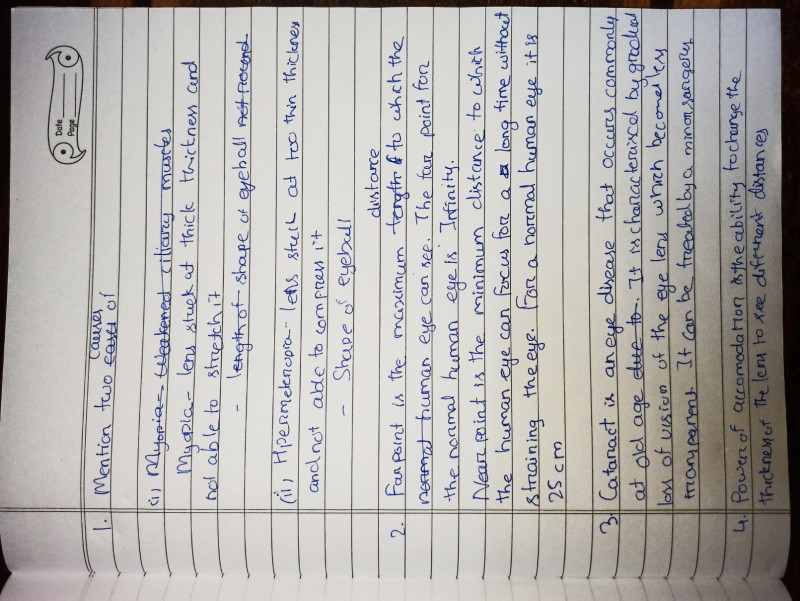 Date
Page
causes
1. Mention two cases of
(i), Myopia- Weakened ciliary muscles
Myopia- lens stuck at thick thickness and
not able to stretch it
- length of shape of eyeball not round
(ii, Hipermeteropia- lens stuck at too thin thickness
and not able to compress it
- Shape of eyeball
distance
2. Far point is the maximum length f to which the
normal human eye can see. The far point for
the normal human eye is Infinity.
Near point is the minimum distance to which
the human eye can focus for a a long time without
straining the eye. For a normal human eye it is
25 cm
3. Cataract is an eye disease that occurs commonly
at old age due to. It is characterised by gradual
loss of vision of the eye lens which becomes less
transparent. It can be treated by a minor surgery.
4. Power of accomodation is the ability to change the
thickness of the lens to see different distances